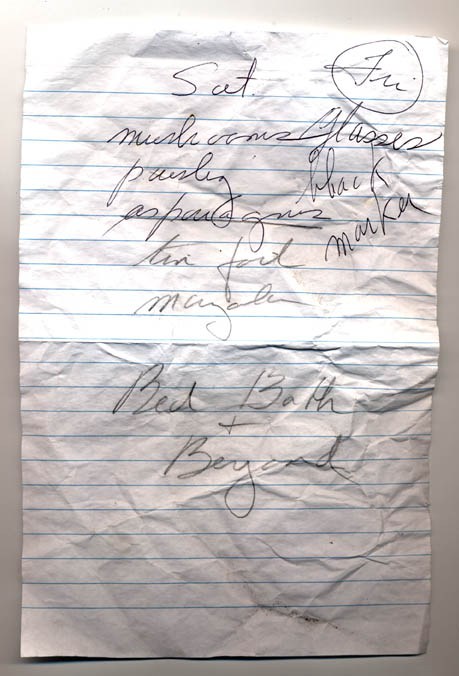 Sat.
Fri
mushrooms
glasses
parsley
black
asparagus
marker
tin foil
Bed Bath
+
Beyond